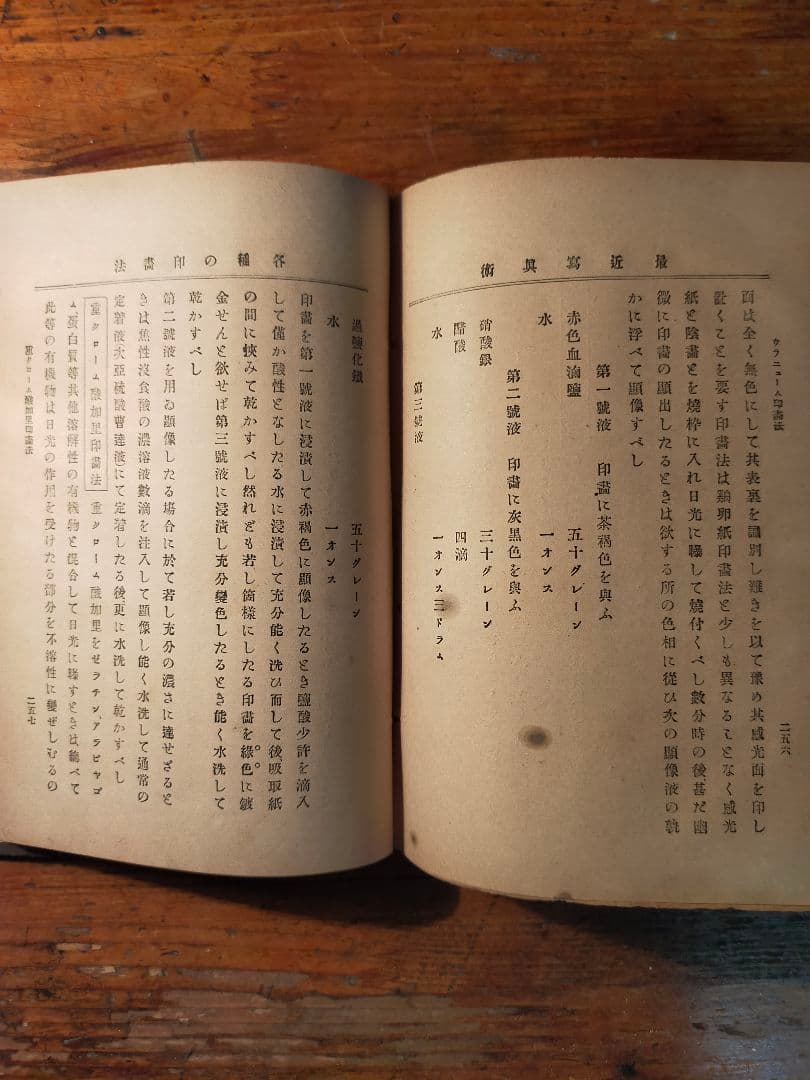 最近寫眞術
ウラニューム印畫法
二五六
面は全く無色にして其表裏を識別し難きを以て豫め其感光面を印し
置くことを要す印畫法は鷄卵紙印畫法と少しも異なることなく感光
紙と陰畫とを燒枠に入れ日光に曝して燒付くべし數分時の後、甚だ幽
微に印畫の顯出したるときは欲する所の色相に從ひ次の顯像液の孰
かに浮べて顯像すべし
第一號液 印畫に茶褐色を與ふ
赤色血滷鹽 五十グレーン
水 一オンス
第二號液 印畫に灰黑色を與ふ
硝酸銀 三十グレーン
醋酸 四滴
水 一オンス三ドラム
第三號液
各種の印畫法
過鹽化鐵 五十グレーン
水 一オンス
印畫を第一號液に浸漬して赤褐色に顯像したるとき鹽酸少許を滴入
して僅か酸性となしたる水に浸漬して充分能く洗ひ而して後、吸取紙
の間に挾みて乾かすべし然れども若し箇樣にしたる印畫を綠色に鍍
金せんと欲せば第三號液に浸漬し充分變色したるとき能く水洗して
乾かすべし
第二號液を用ゐ顯像したる場合に於て若し充分の濃さに達せざると
きは焦性沒食酸の濃溶液數滴を注入して顯像し能く水洗して通常の
定着液(次亞硫酸曹達液)にて定着したる後更に水洗して乾かすべし
重クローム酸加里印畫法 重クローム酸加里をゼラチン、アラビヤゴ
ム、蛋白質等其他溶解性の有機物と混合して日光に曝すときは總べて
此等の有機物は日光の作用を受けたる部分を不溶性に變ぜしむるの
重クローム酸加里印畫法
二五七